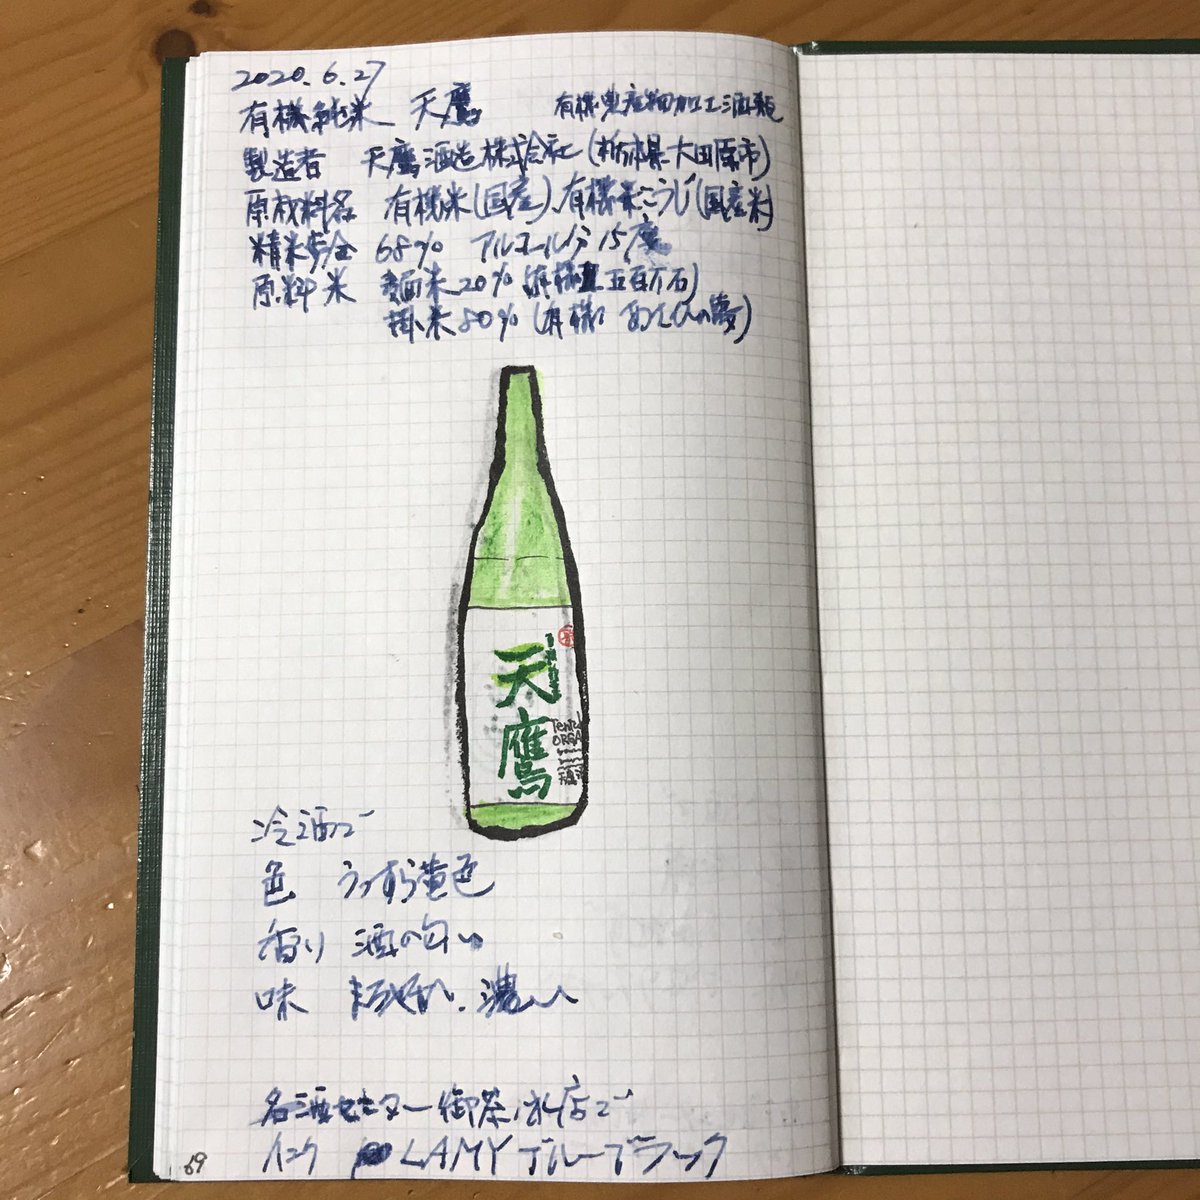 2020.6.27
有機純米 天鷹 有機農産物加工酒類
製造者 天鷹酒造株式会社(栃木県大田原市)
原材料名 有機米(国産)、有機米こうじ(国産米)
精米歩合 68% アルコール分 15度
原料米 麹米20%(有機 五百万石)
掛米80%(有機 あさひの夢)
天鷹
ORGA
冷酒で
色 うっすら黄色
香り 酒の匂い
味 まろやか、濃い
名酒センター御茶ノ水店で
インク LAMY ブルーブラック
69